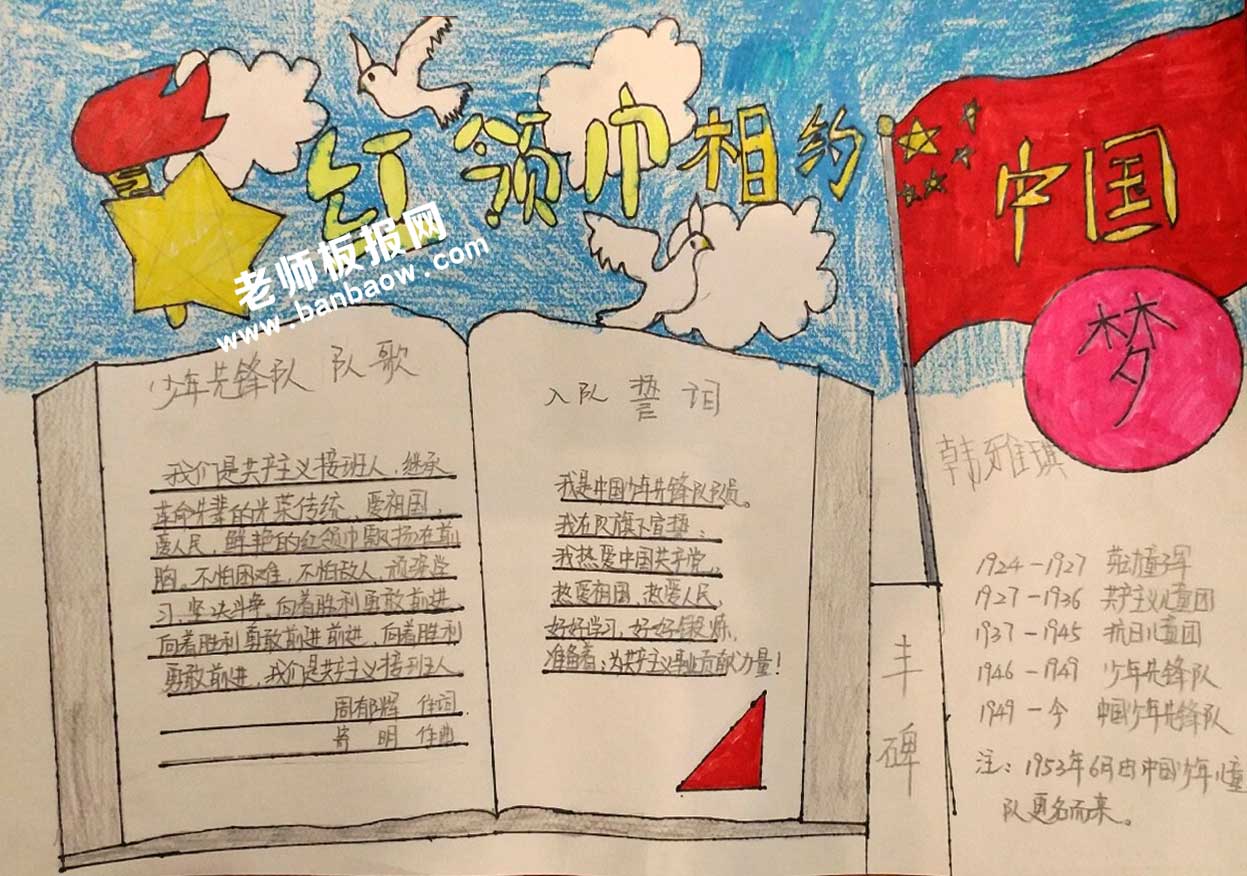 红领巾相约
中国
梦
老师板报网
www.banbaow.com
少年先锋队 队歌
我们是共产主义接班人，继承
革命先辈的光荣传统，爱祖国，
爱人民，鲜艳的红领巾飘扬在前
胸。不怕困难，不怕敌人，顽强学
习，坚决斗争，向着胜利勇敢前进
向着胜利勇敢前进前进，向着胜利
勇敢前进，我们是共产主义接班人
周郁辉 作词
寄 明 作曲
入队 誓 词
我是中国少年先锋队队员。
我在队旗下宣誓：
我热爱中国共产党，
热爱祖国，热爱人民，
好好学习，好好锻炼，
准备着：为共产主义事业贡献力量！
丰
碑
韩雅琪
1924-1927 劳动童子军
1927-1936 共产主义儿童团
1937-1945 抗日儿童团
1946-1949 少年先锋队
1949-今 中国少年先锋队
注：1953年6月由中国少年儿童
队更名而来。